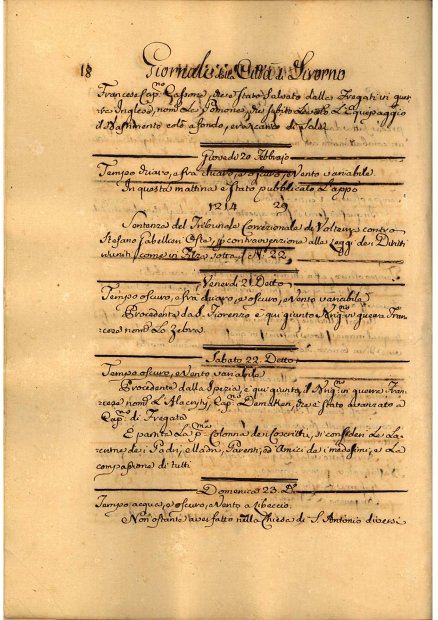 18 Giornale di Città di Livorno
Francese Cap.no Cassone, che è stato Salvato dalla Fregata in guer
Inglese, nom.ta Le Pomone, che subito levato l'Equipaggio
il Bastimento colò a fondo, era carico di Sale
Giovedì 20 Febbrajo
Tempo chiaro, e frà chiaro, e oscuro, e Vento variabile
In questa mattina è stato pubblicato l'appo
1214 29
Sentenza del Tribunale Correzionale di Volterra contro
Stefano Gabelleri per contravvenzione alle Leggi dei Diritti
riuniti come in Filza sotto il N.o 22.
Venerdì 21 Detto
Tempo oscuro, e frà chiaro, e oscuro, e Vento variabile
Procedente da S. Fiorenzo è qui giunto il Brig.no in guerra Fran
cese nom.to La Zebra.
Sabato 22. Detto
Tempo oscuro, e Vento variabile
Procedente dalla Spezia, è qui giunto il Brig.no in guerra Fran
cese nom.to L'Alacrity, Cap.no che è stato avanzato a
Cap.no di Fregata
È partita La p.ma Colonna dei Coscritti, si consideri Le La
crime dei Padri, e Madri, Parenti, ed Amici dei medesimi, e La
compassione di tutti
Domenica 23. D.o
Tempo acqua, e oscuro, e Vento a Libeccio
Non ostante aver fatto nella Chiesa di S. Antonio diversi